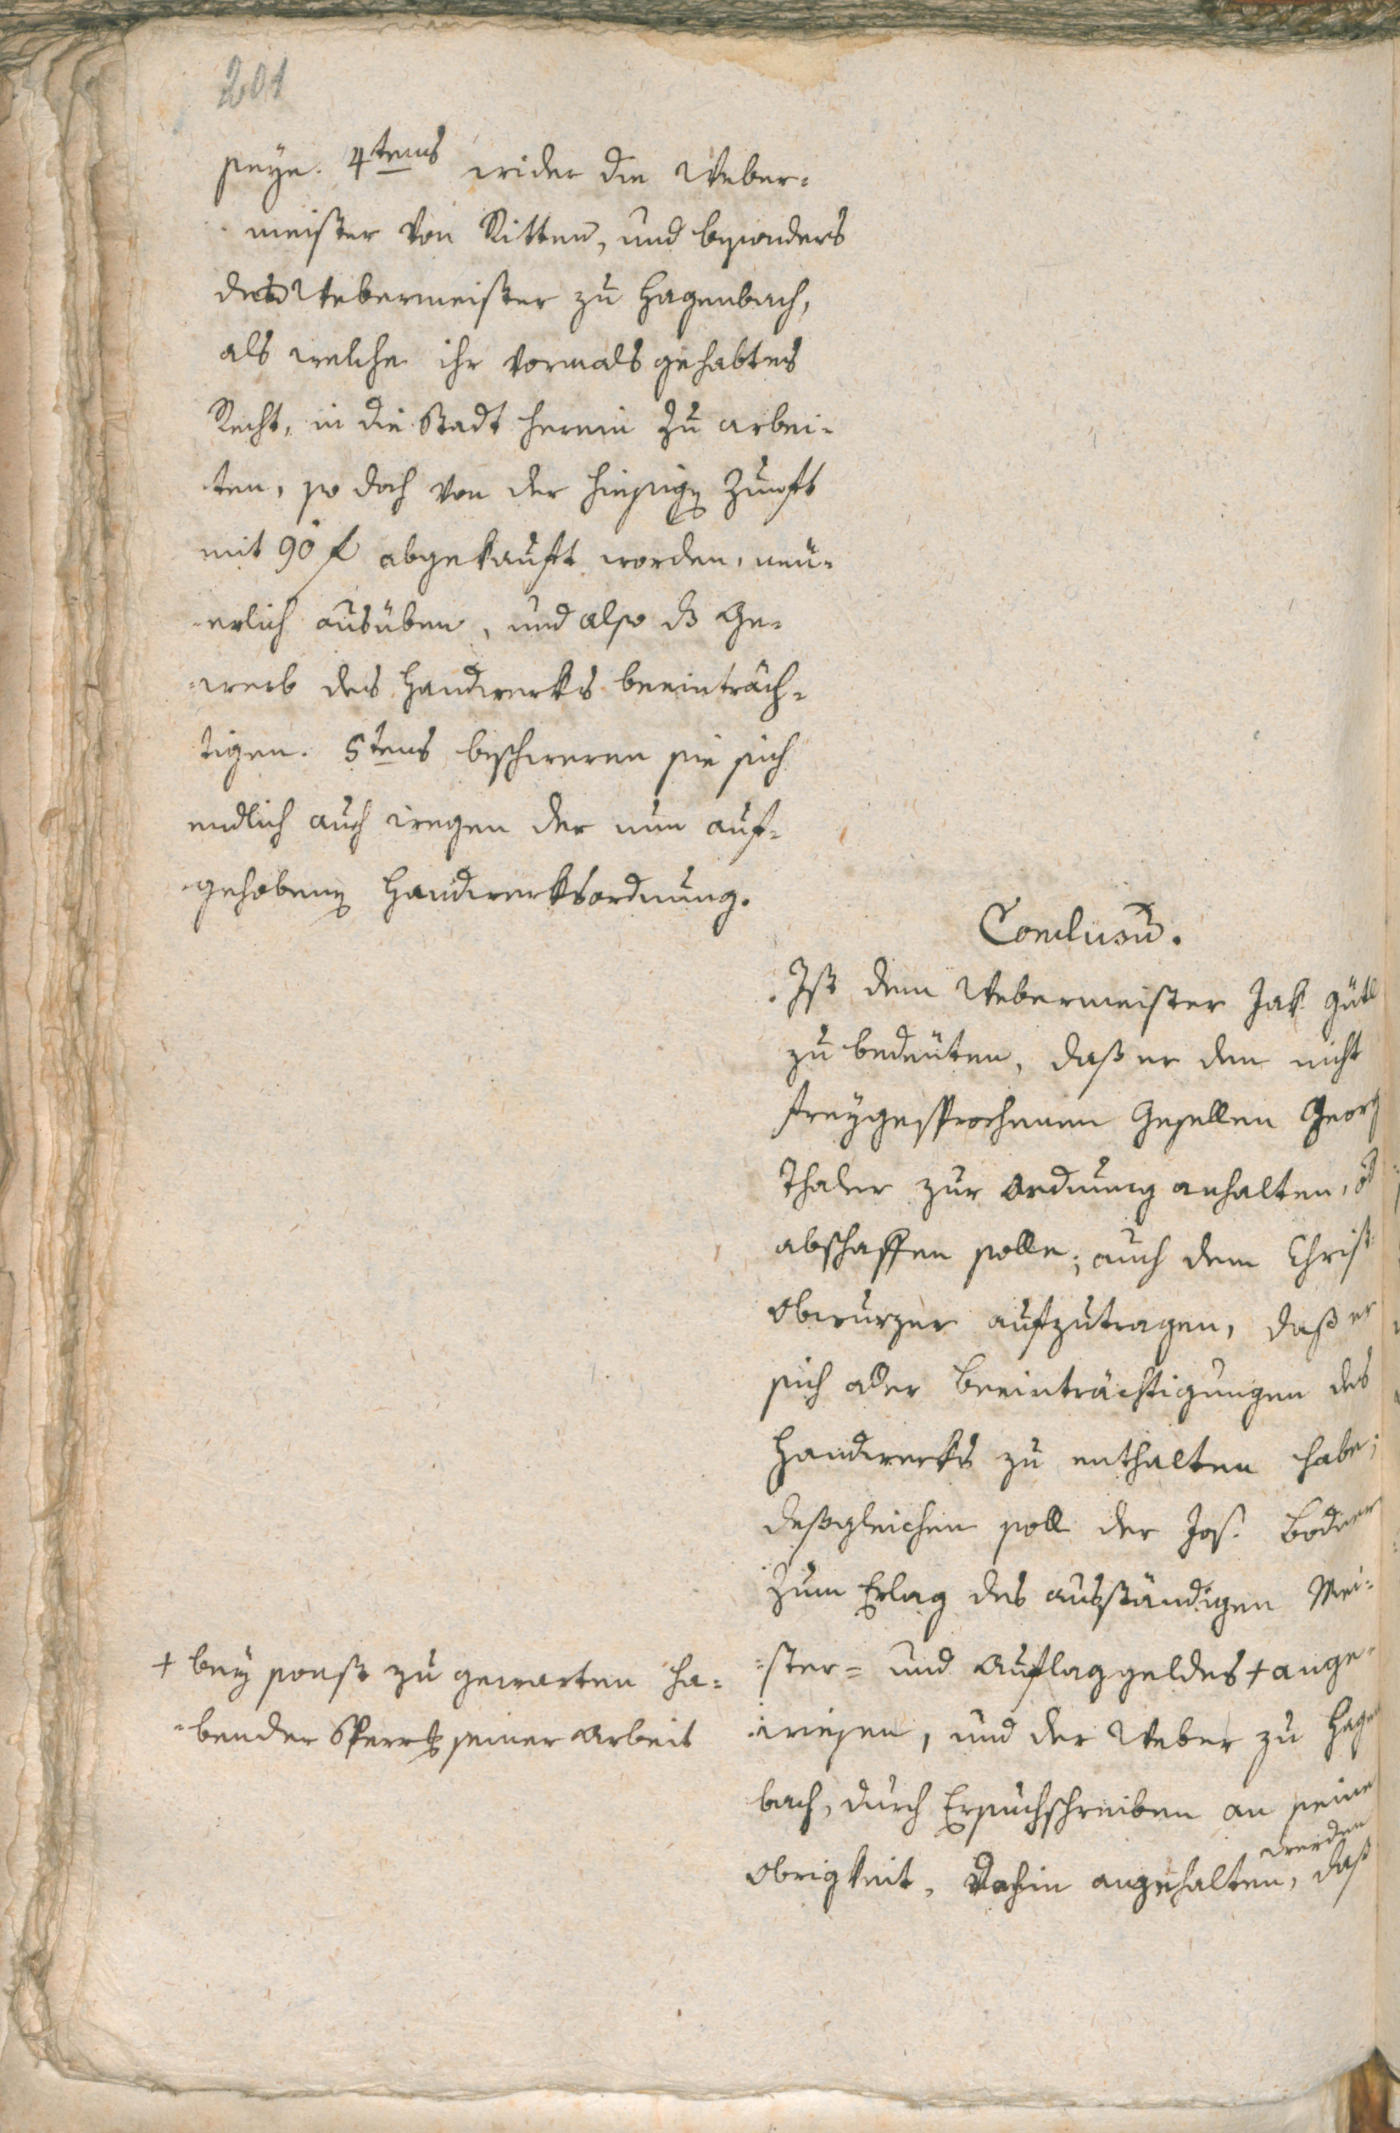 201
seye. 4tens wider die Weber-
meister von Ritten, und besonders
des Webermeister zu Hagenbach,
als welche ihr vormals gehabtes
Recht, in die Stadt herein zu arbei-
ten, so doch von der hiesigen Zunft
mit 90 f abgekauft worden, neu-
erlich ausüben, und also das Ge-
werb des Handwerks beeinträch-
tigen. 5tens beschweren sie sich
endlich auch wegen der nun auf-
gehobenen Handwerksordnung.
Conclusū.
Ist dem Webermeister Jak. Gütl
zu bedeuten, daß er den nicht
freygesprochenen Gesellen Georg
Thaler zur Ordnung anhalten, od
abschaffen solle; auch dem Christ.
Obwurzer aufzutragen, daß er
sich aller Beeinträchtigungen des
Handwerks zu enthalten habe;
deßgleichen soll der Jos. Bodner
zum Erlag des ausständigen Mei-
ster- und Auflaggeldes + ange-
+ bey sonst zu gewarten ha-
bender Sperrg seiner Arbeit
wiesen, und der Weber zu Hagen
bach, durch Ersuchschreiben an seine
werden
Obrigkeit, dahin angehalten, daß